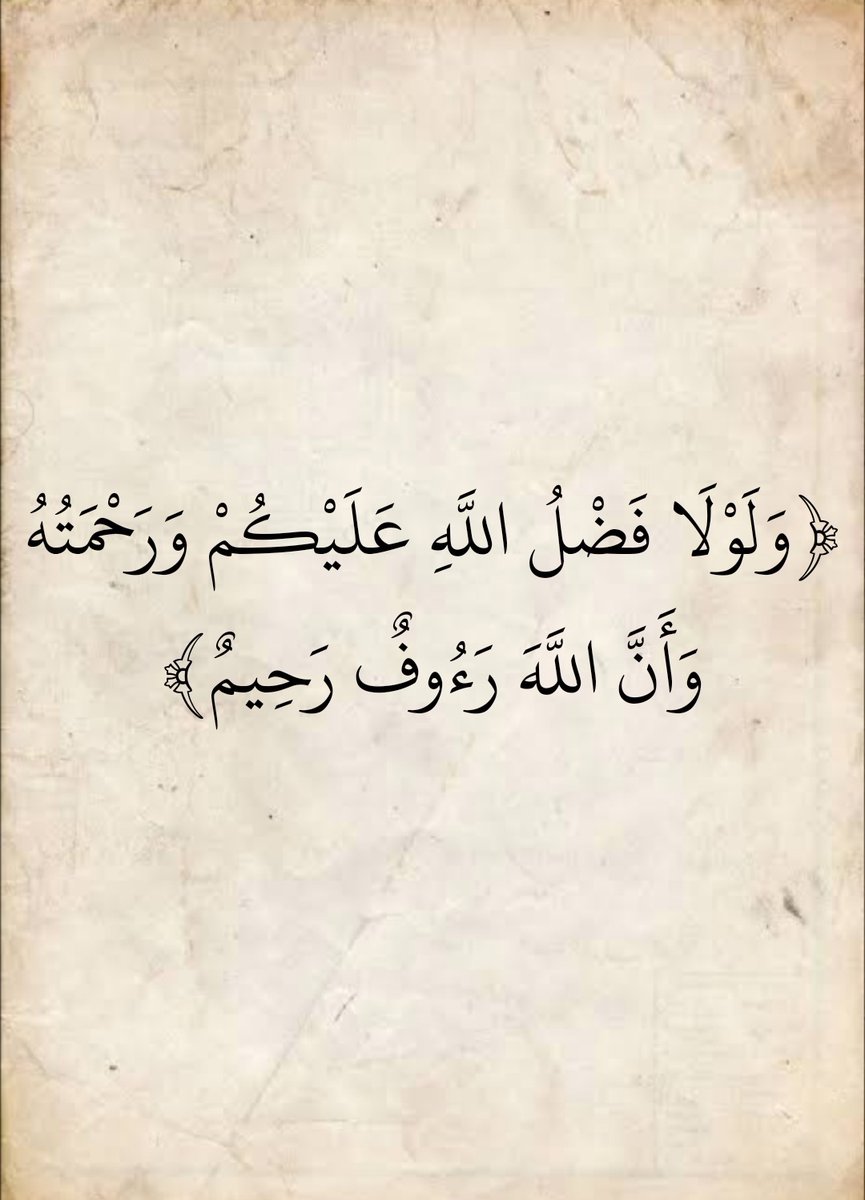 ﴿وَلَوْلَا فَضْلُ اللَّهِ عَلَيْكُمْ وَرَحْمَتُهُ
وَأَنَّ اللَّهَ رَءُوفٌ رَحِيمٌ﴾